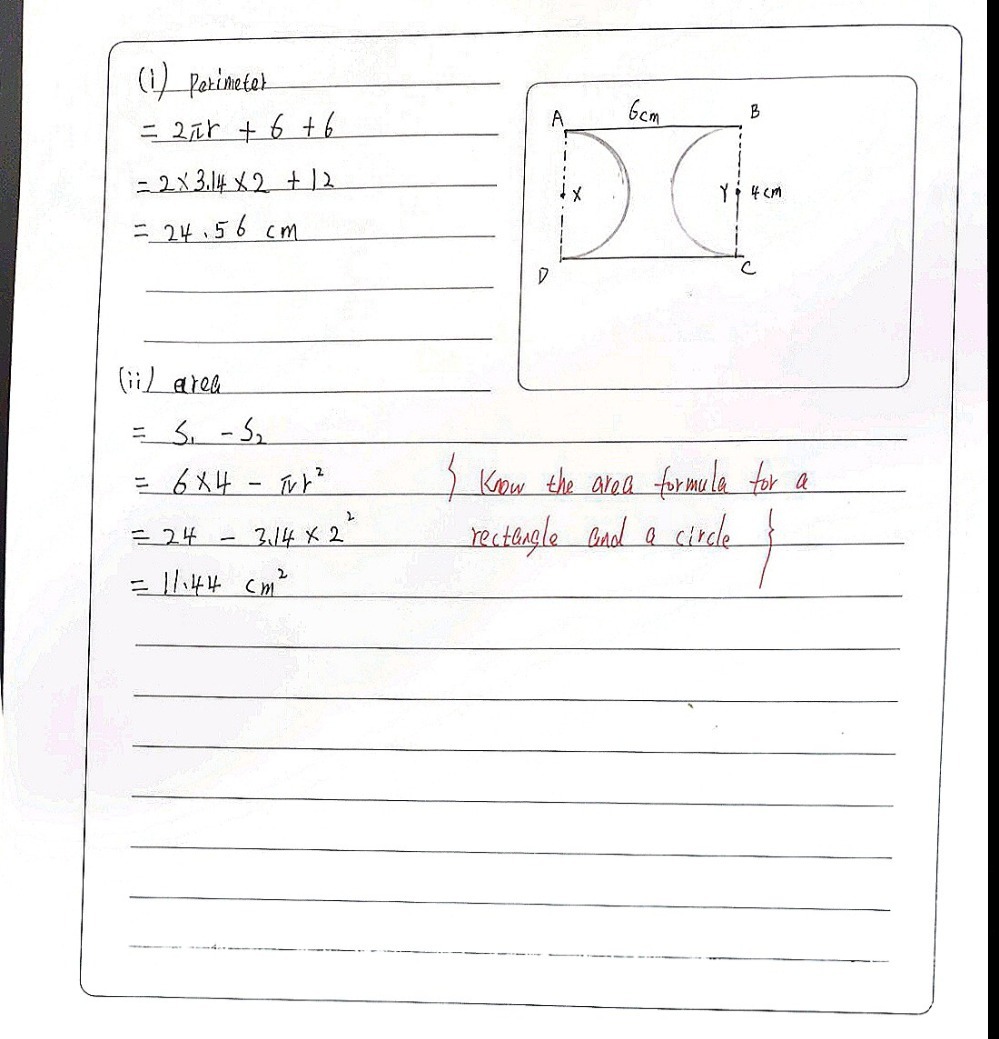 (i) Perimeter
= 2πr + 6 + 6
= 2×3.14×2 + 12
= 24.56 cm
A 6cm B
X Y 4cm
D C
(ii) area
= S₁ - S₂
= 6×4 - πr²
= 24 - 3.14 × 2²
= 11.44 cm²
} Know the area formula for a
rectangle and a circle }